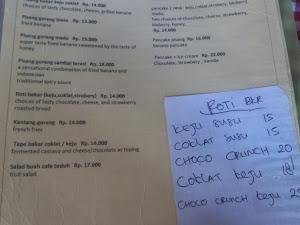 bakar keju Rp. 14.000
choices of tasty chocolate, cheese, grilled banana
Pisang goreng biasa Rp. 13.000
fried banana
Pisang goreng madu Rp. 15.000
super tasty fried banana sweetened by the taste of
honey
Pisang goreng sambal terasi Rp. 18.000
a sensational combination of fried banana and
indonesian
traditional spicy sauce
Roti bakar (keju,coklat,stroberry) Rp. 14.000
choices of tasty chocolate, cheese, and strawberry
roasted bread
Kentang goreng Rp. 14.000
french fries
Tape bakar coklat / keju Rp. 14.000
fermented cassava and cheese/chocolate as toping
Salad buah cafe teduh Rp. 17.000
fruit salad
honey
two choices of chocolate, cheese, strawberry,
blueberry, honey,
Rp. 14.000
Pancake pisang Rp. 16.000
banana pancake
Pancake + ice cream Rp. 22.000
Chocolate, Strawberry, Vanilla
ROTI BKR
KEJU SUSU 15
COKLAT SUSU 15
CHOCO CRUNCH 20
COKLAT keju 18
CHOCO CRUNCH keju 25